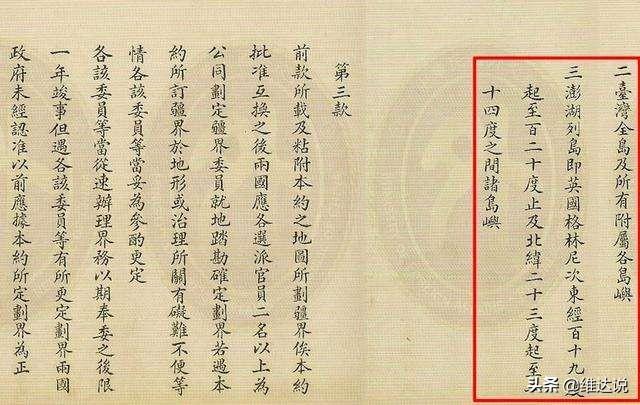 二臺灣全島及所有附屬各島嶼
三澎湖列島即英國格林尼次東經百十九
起至百二十度止及北緯二十三度起至
十四度之間諸島嶼
第三款
前款所載及粘附本約之地圖所劃疆界俟本約
批准互換之後兩國應各選派官員二名以上為
公同劃定疆界委員就地踏勘確定劃界若遇本
約所訂疆界於地形或治理所關有礙難不便等
情各該委員等當妥為參酌更定
各該委員等當從速辦理界務以期奉委之後限
一年竣事但遇各該委員等有所更定劃界兩國
政府未經認准以前應據本約所定劃界為正
头条 @维达说